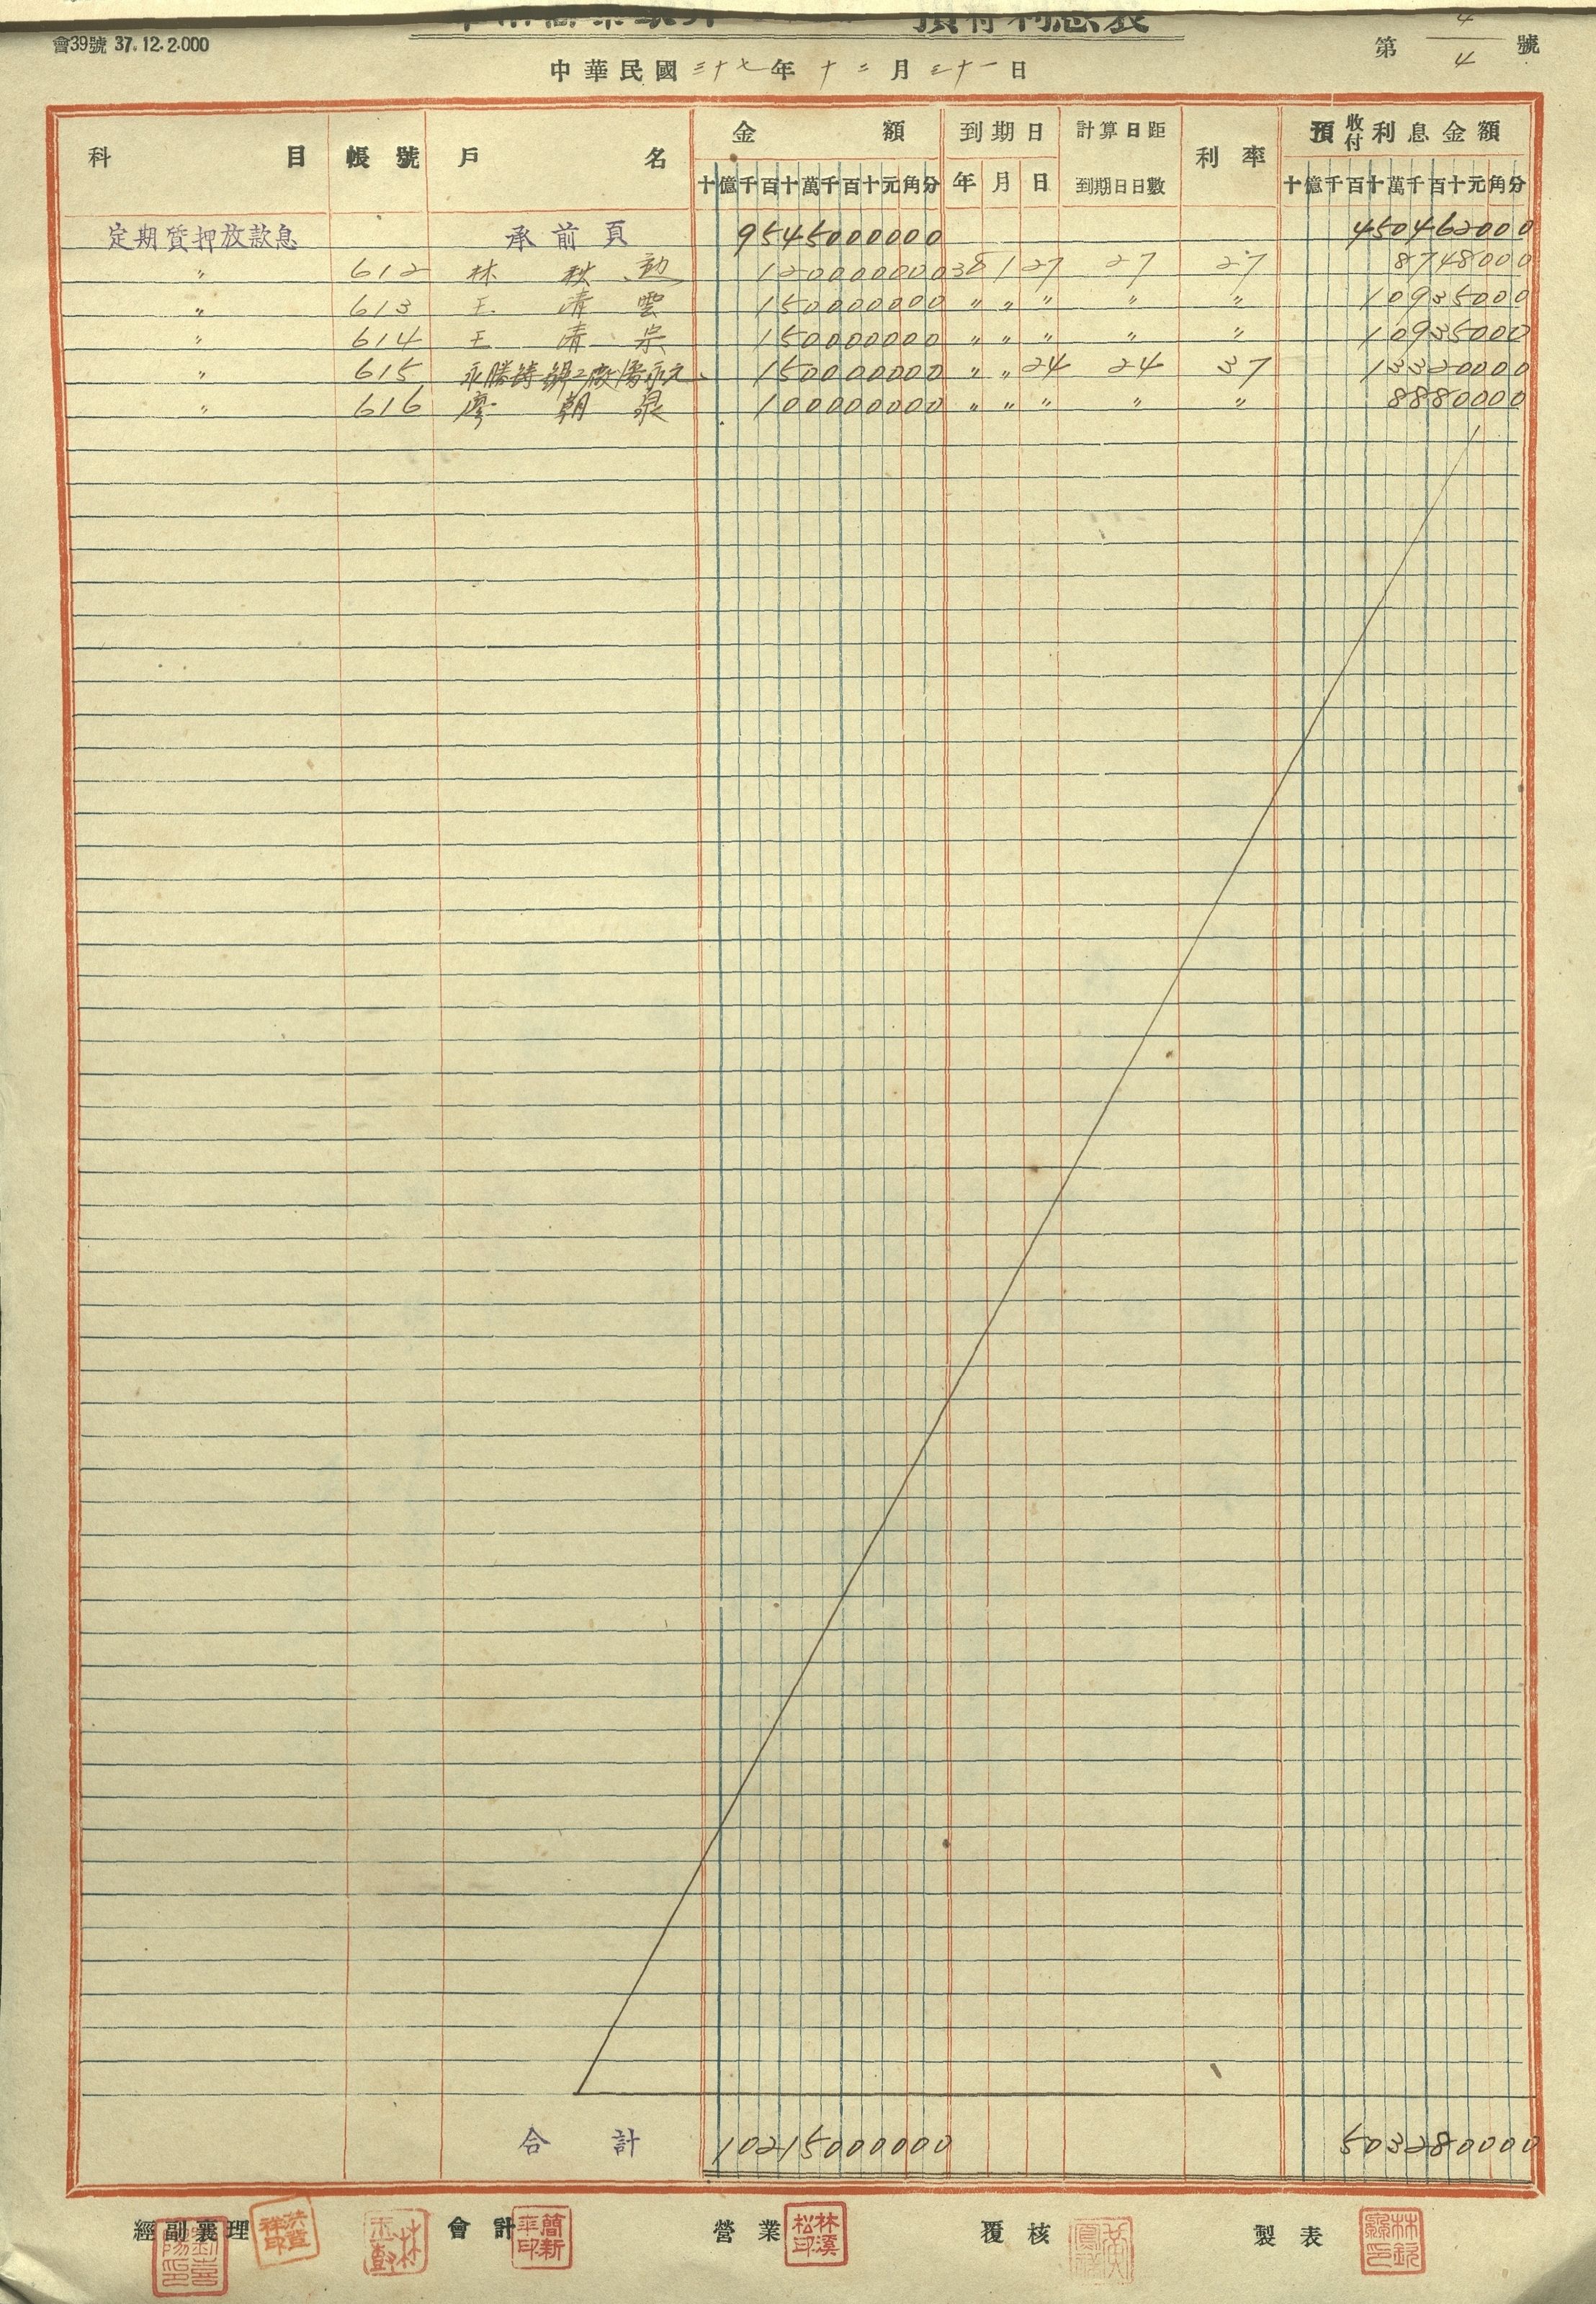 預付利息表
會39號 37.12.2.000
第 4/4 號
中華民國三十七年十二月三十一日
科目 帳號 戶名 金額 到期日 計算日距到期日日數 利率 預收付利息金額
十億千百十萬千百十元角分 年 月 日 十億千百十萬千百十元角分
定期質押放款息 承前頁 9545000000 450462000
〃 612 林秋 120000000 38 1 27 27 27 8748000
〃 613 王清雲 150000000 〃 〃 〃 〃 〃 10935000
〃 614 王清宗 150000000 〃 〃 〃 〃 〃 10935000
〃 615 永勝鑄 工廠 永元 150000000 〃 〃 24 24 37 13320000
〃 616 廖朝泉 100000000 〃 〃 〃 〃 〃 8880000
合計 10215000000 503280000
經副襄理 會計 營業 覆核 製表
洪登祥印 簡新華印 林溪松印